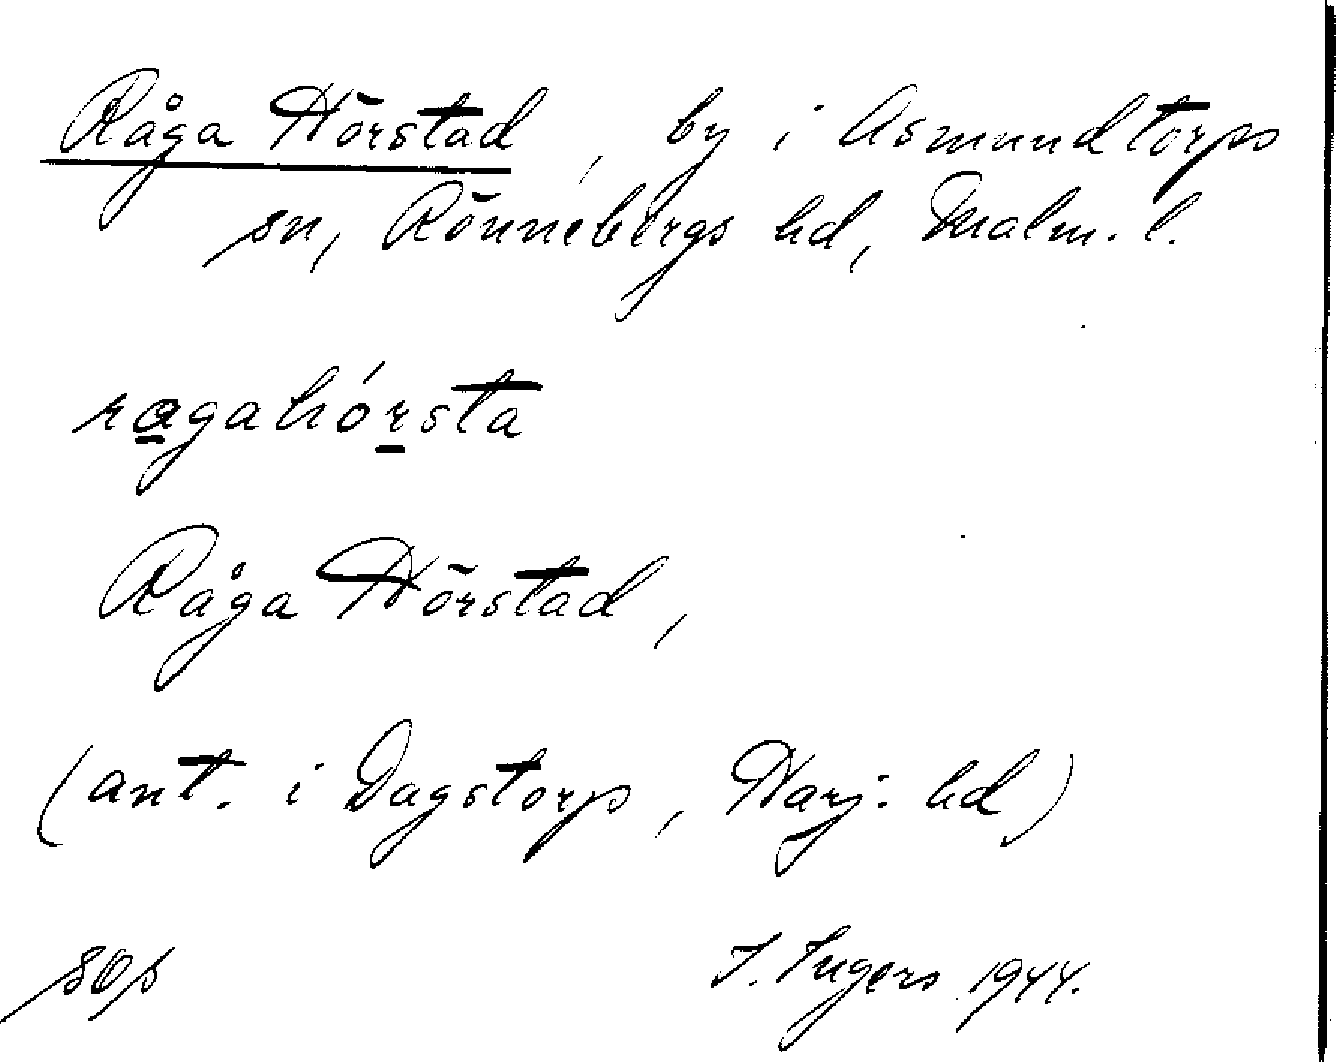 Råga Hörstad, by i Asmundtorps
sn, Rönnebergs hd, Malm. l.
ragahórsta
Råga Hörstad,
(ant. i Dagstorp, Harj. hd)
sop
I. Ingers 1944.